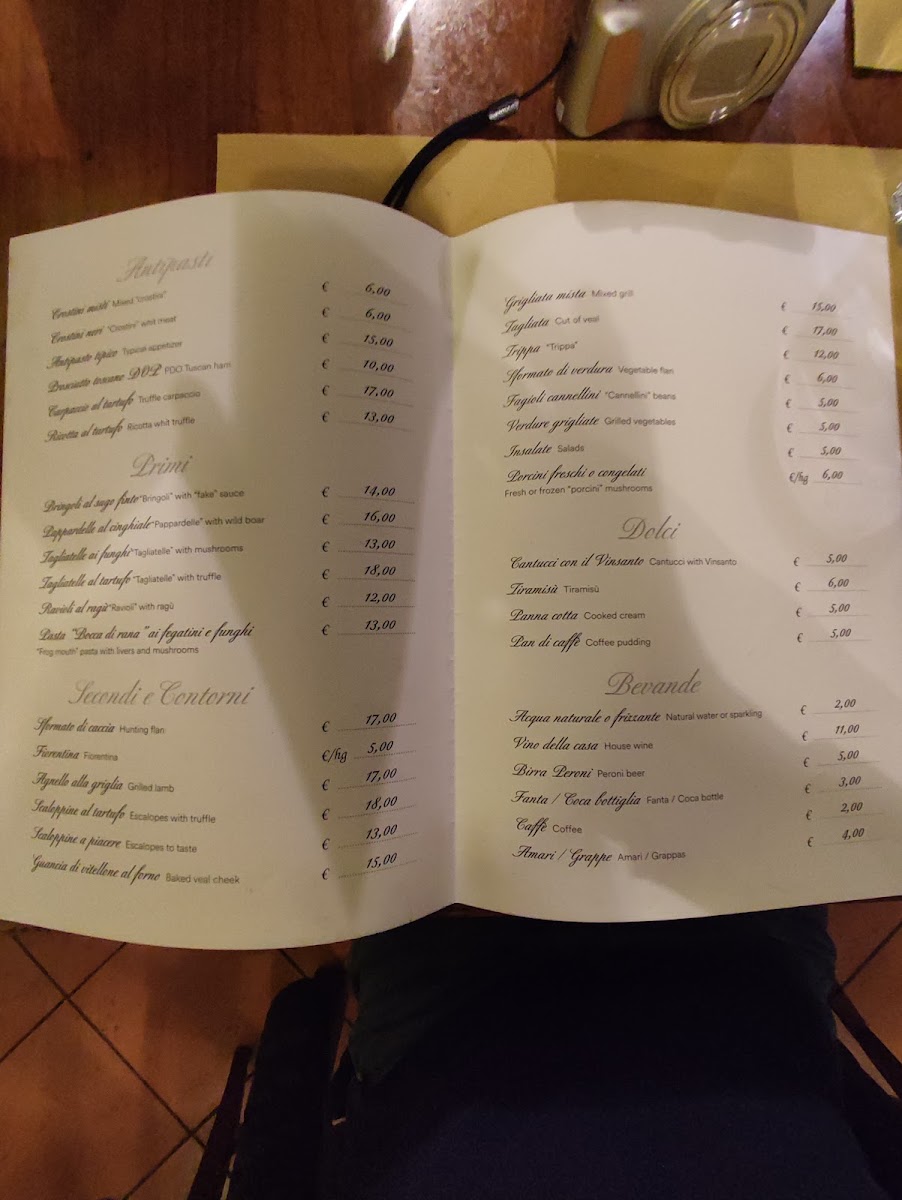 Antipasti
Crostini misti Mixed "crostini" € 6,00
Crostini neri "Crostini" whit meat € 6,00
Antipasto tipico Typical appetizer € 15,00
Prosciutto toscano DOP PDO Tuscan ham € 10,00
Carpaccio al tartufo Truffle carpaccio € 17,00
Ricotta al tartufo Ricotta whit truffle € 13,00
Primi
Bringoli al sugo finto "Bringoli" with "fake" sauce € 14,00
Pappardelle al cinghiale "Pappardelle" with wild boar € 16,00
Tagliatelle ai funghi "Tagliatelle" with mushrooms € 13,00
Tagliatelle al tartufo "Tagliatelle" with truffle € 18,00
Ravioli al ragù "Ravioli" with ragù € 12,00
Pasta "Bocca di rana" ai fegatini e funghi € 13,00
"Frog mouth" pasta with livers and mushrooms
Secondi e Contorni
Sformato di caccia Hunting flan € 17,00
Fiorentina Fiorentina €/hg 5,00
Agnello alla griglia Grilled lamb € 17,00
Scaloppine al tartufo Escalopes with truffle € 18,00
Scaloppine a piacere Escalopes to taste € 13,00
Guancia di vitellone al forno Baked veal cheek € 15,00
Grigliata mista Mixed grill € 15,00
Tagliata Cut of veal € 17,00
Trippa "Trippa" € 12,00
Sformato di verdura Vegetable flan € 6,00
Fagioli cannellini "Cannellini" beans € 5,00
Verdure grigliate Grilled vegetables € 5,00
Insalate Salads € 5,00
Porcini freschi o congelati €/hg 6,00
Fresh or frozen "porcini" mushrooms
Dolci
Cantucci con il Vinsanto Cantucci with Vinsanto € 5,00
Tiramisù Tiramisù € 6,00
Panna cotta Cooked cream € 5,00
Pan di caffè Coffee pudding € 5,00
Bevande
Acqua naturale o frizzante Natural water or sparkling € 2,00
Vino della casa House wine € 11,00
Birra Peroni Peroni beer € 5,00
Fanta / Coca bottiglia Fanta / Coca bottle € 3,00
Caffè Coffee € 2,00
Amari / Grappe Amari / Grappas € 4,00